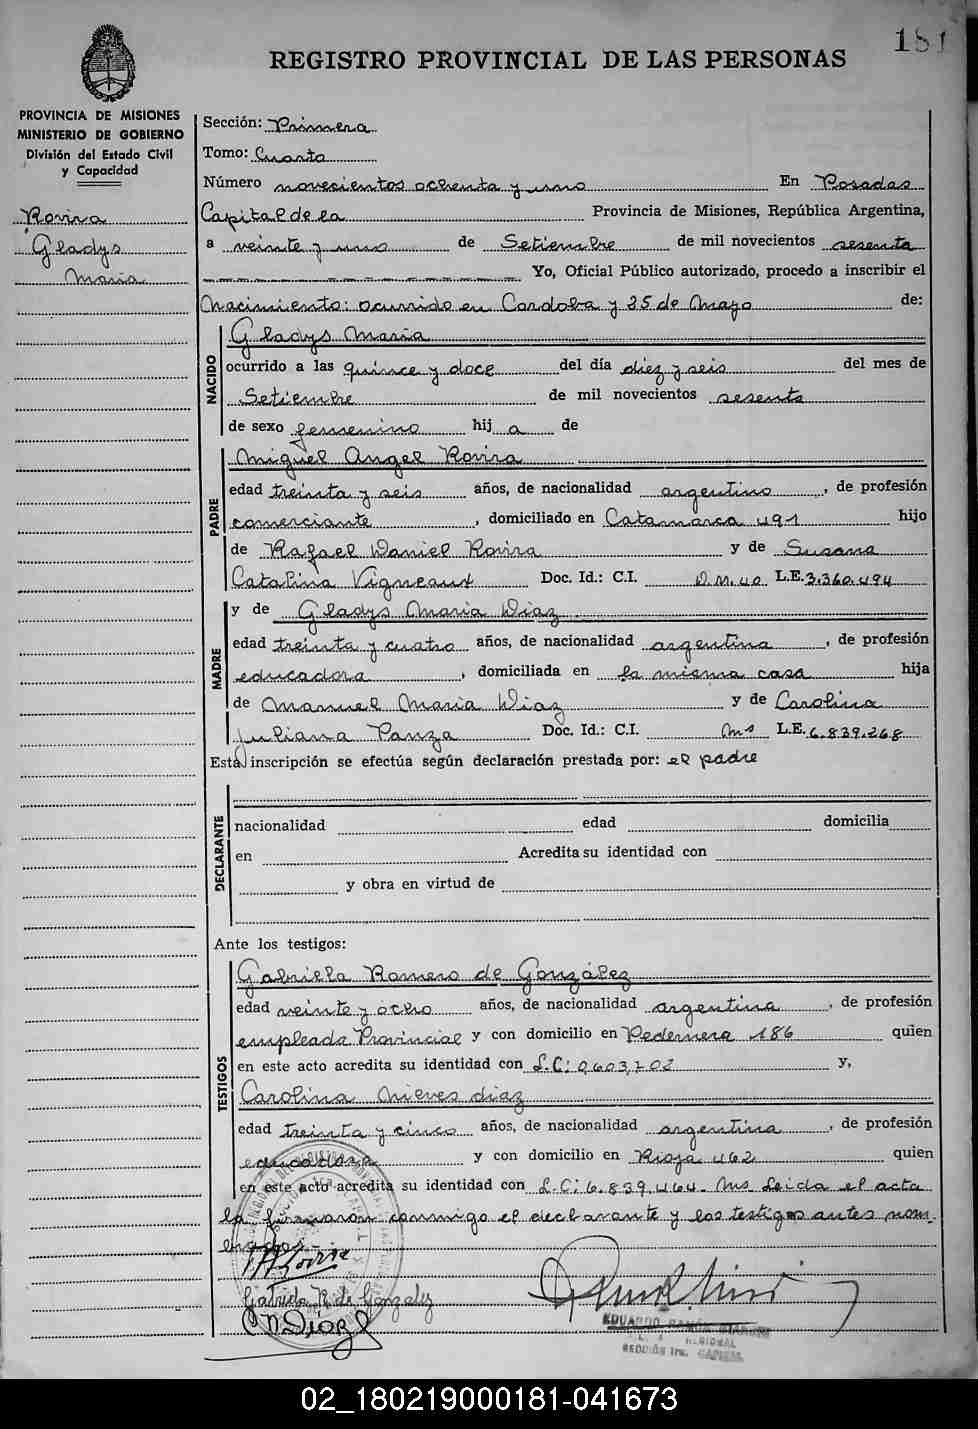 181
REGISTRO PROVINCIAL DE LAS PERSONAS
PROVINCIA DE MISIONES
MINISTERIO DE GOBIERNO
División del Estado Civil
y Capacidad
Rovira
Gladys
Maria
Sección: Primera
Tomo: Cuarto
Número novecientos ochenta y uno En Posadas
Capital de la Provincia de Misiones, República Argentina,
a veinte y uno de Setiembre de mil novecientos sesenta
Yo, Oficial Público autorizado, procedo a inscribir el
Nacimiento: ocurrido en Cordoba y 25 de Mayo de:
NACIDO
Gladys Maria
ocurrido a las quince y doce del día diez y seis del mes de
Setiembre de mil novecientos sesenta
de sexo femenino hij a de
PADRE
Miguel Angel Rovira
edad treinta y seis años, de nacionalidad argentino, de profesión
comerciante, domiciliado en Catamarca 491 hijo
de Rafael Daniel Rovira y de Susana
Catalina Vigneaux Doc. Id.: C.I. D.M. 40 L.E. 3.360.494
MADRE
y de Gladys Maria Diaz
edad treinta y cuatro años, de nacionalidad argentina, de profesión
educadora, domiciliada en la misma casa hija
de Manuel Maria Diaz y de Carolina
Juliana Panza Doc. Id.: C.I. Ms L.E. 6.839.268
Esta inscripción se efectúa según declaración prestada por: el padre
DECLARANTE
nacionalidad edad domicilia
en Acredita su identidad con
y obra en virtud de
Ante los testigos:
TESTIGOS
Gabriela Romero de González
edad veinte y ocho años, de nacionalidad argentina, de profesión
empleada Provincial y con domicilio en Pedernera 186 quien
en este acto acredita su identidad con L.C: 0,603,702 y,
Carolina Nieves diaz
edad treinta y cinco años, de nacionalidad argentina, de profesión
educadora y con domicilio en Rioja 462 quien
en este acto acredita su identidad con L.C: 6.839.464. Ms Leida el acta
la firmaron conmigo el declarante y los testigos antes nom-
brados.-
Gabriela R. de Gonzalez
C N Diaz
EDUARDO RAMÓN
REGIONAL
SECCIÓN 1ra. CAPITAL
02_180219000181-041673